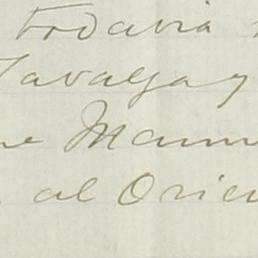 todavia
Tavalga y
Manu
al Orie